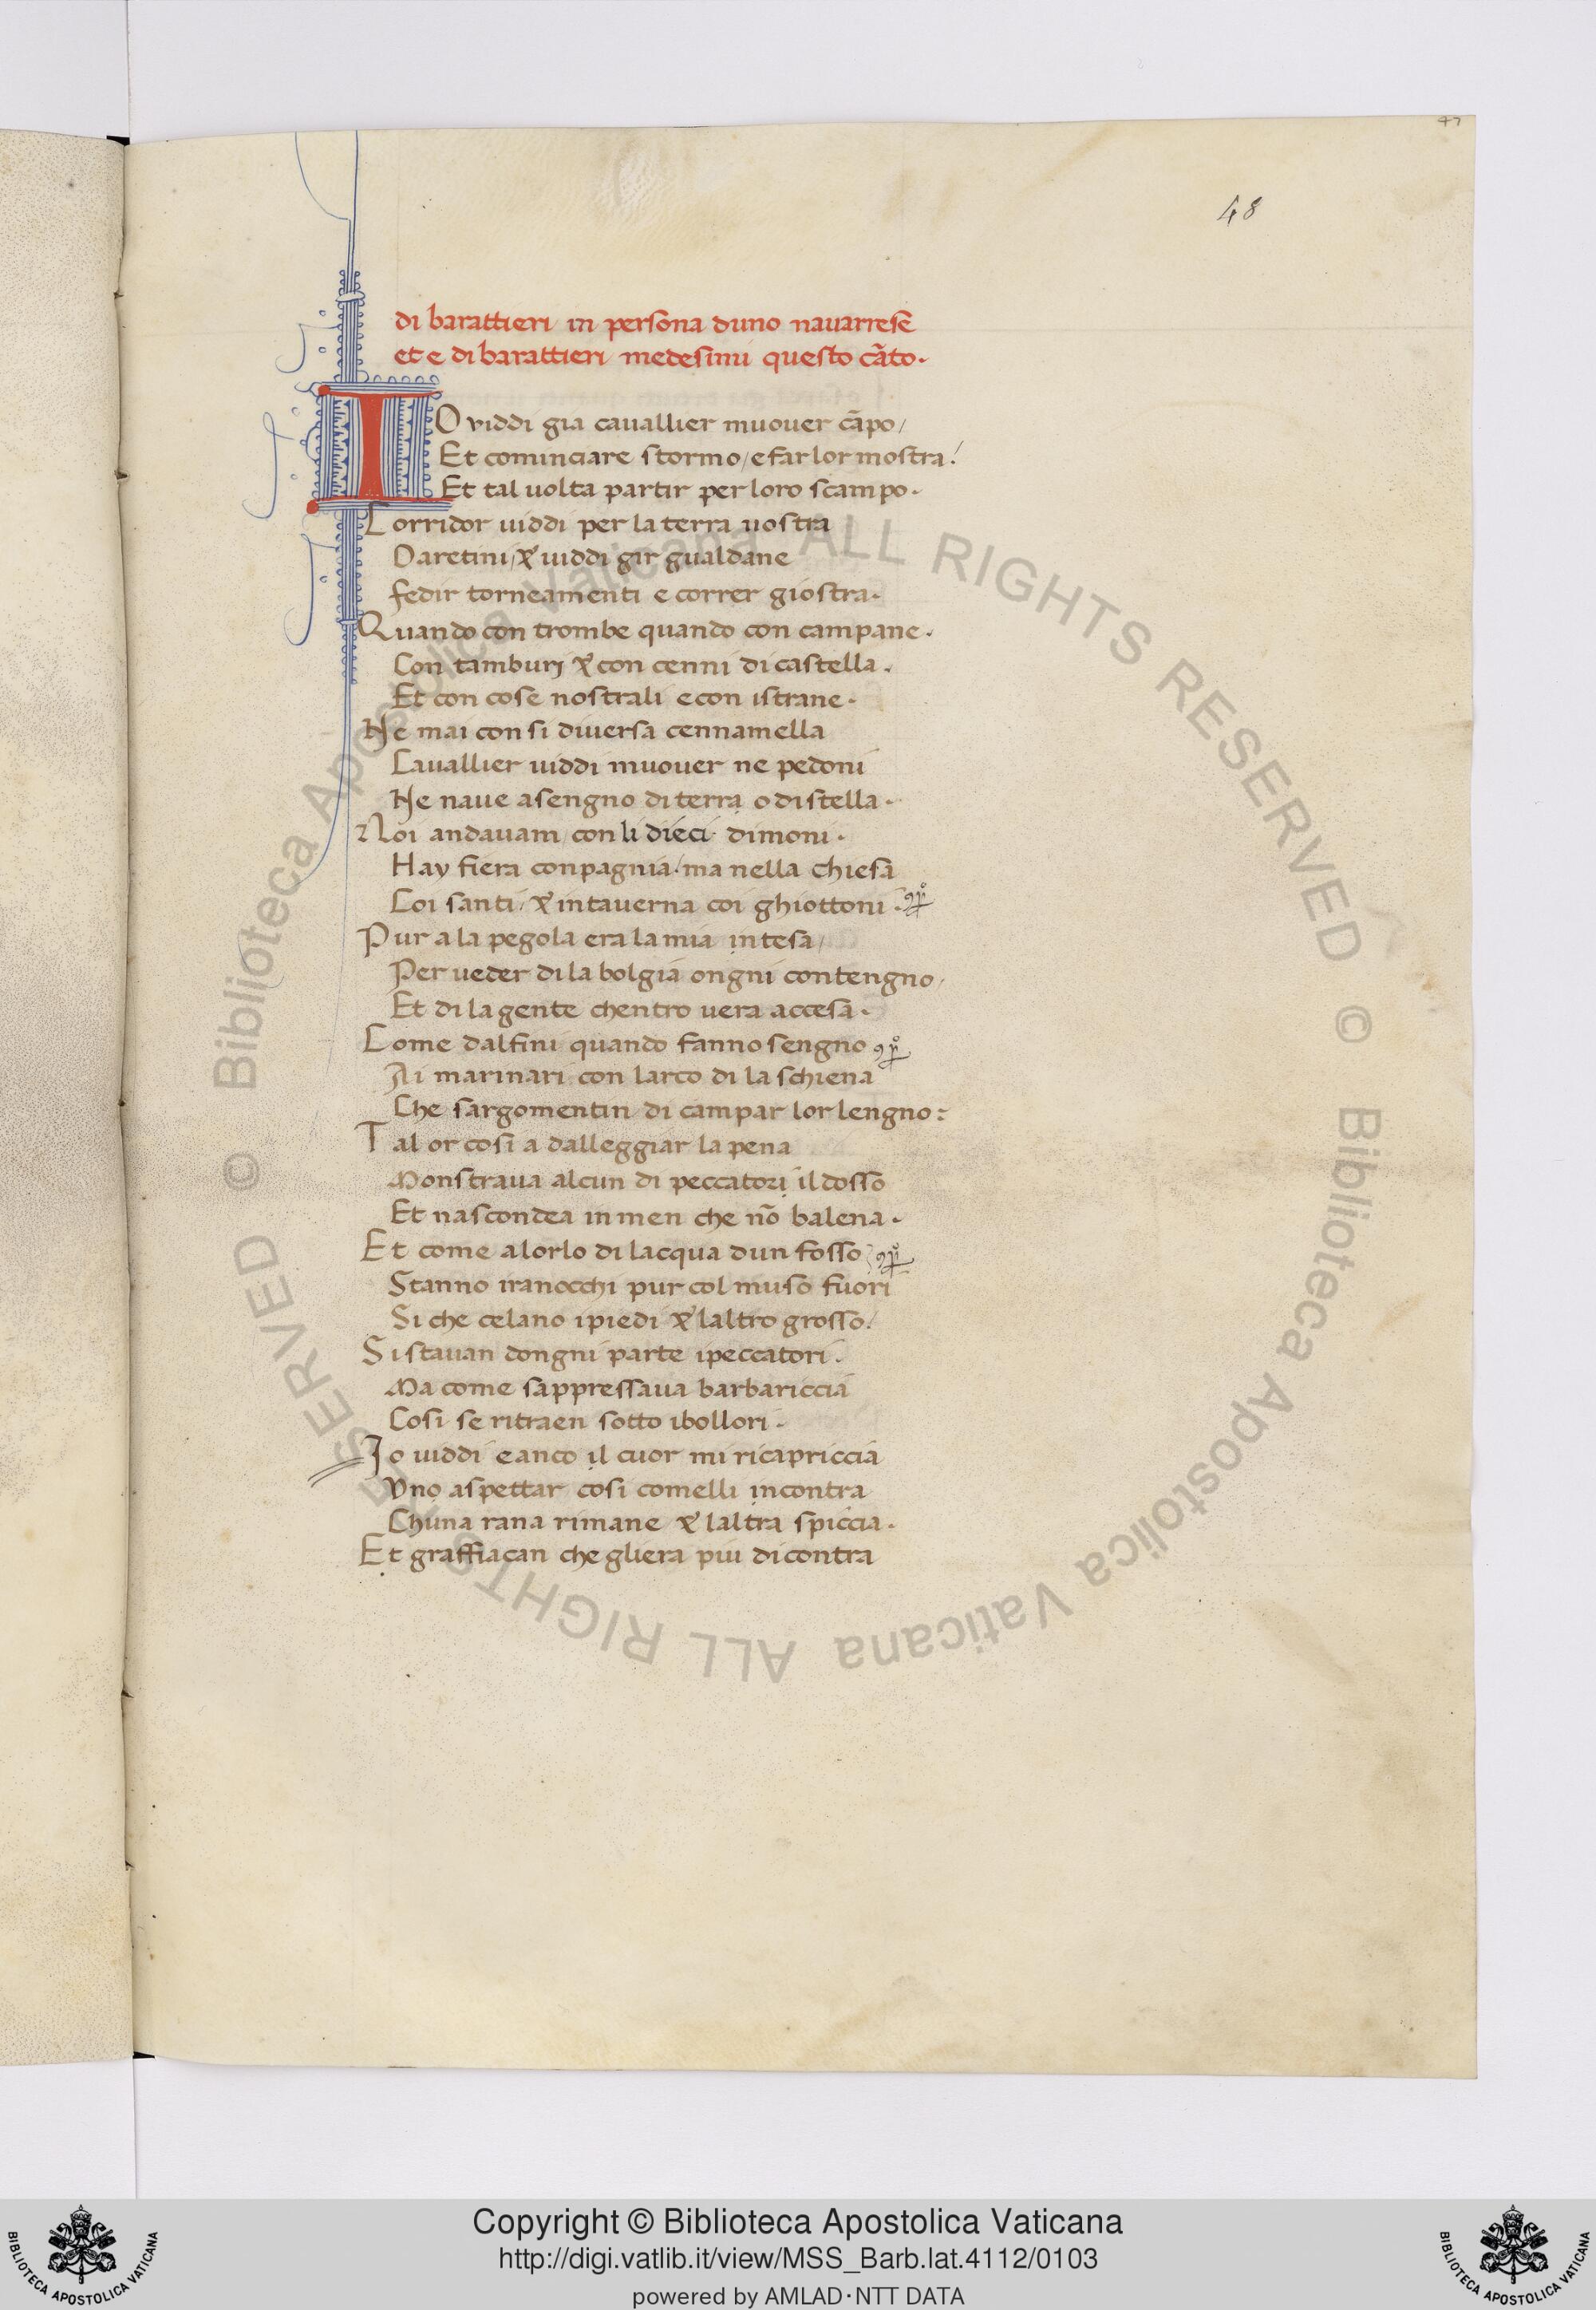 47
48
di barattieri in persona duno navarrese
et e di barattieri medesimi questo cãto.
IO viddi gia cavallier muover cãpo/
Et cominciare stormo/e far lor mostra!
Et tal volta partir per loro scampo.
Corridor viddi per la terra vostra
O aretini/⁊ viddi gir gualdane
fedir torneamenti e correr giostra.
Quando con trombe quando con campane.
Con tamburj ⁊ con cenni di castella.
Et con cose nostrali e con istrane.
Ne mai con si diversa cennamella
Cavallier viddi muover ne pedoni
Ne nave a sengno di terra o di stella.
Noi andavam/con li dieci dimoni.
Hay fiera conpagnia/.ma nella chiesa
Coi santi/⁊ in taverna coi ghiottoni.
Pur a la pegola era la mia intesa/
Per veder di la bolgia ongni contengno/
Et di la gente chentro vera accesa.
Come dalfini quando fanno sengno
Ai marinari con larco di la schiena
Che sargomentin di campar lor lengno:
Tal or cosi a dalleggiar la pena
Monstrava alcun di peccatori il dosso
Et nascondea in men che nõ balena.
Et come a lorlo di lacqua dun fosso
Stanno i ranocchi pur col muso fuori
Si che celano i piedi ⁊ laltro grosso/
Si stavan dongni parte i peccatori.
Ma come sappressava barbariccia
Cosi se ritraen sotto i bollori.
Jo viddi e anco il cuor mi ricapriccia
Uno aspettar cosi comelli incontra
Chuna rana rimane ⁊ laltra spiccia.
Et graffiacan che gliera piu di contra
© Biblioteca Apostolica Vaticana ALL RIGHTS RESERVED © Biblioteca Apostolica Vaticana ALL RIGHTS RESERVED
Copyright © Biblioteca Apostolica Vaticana
http://digi.vatlib.it/view/MSS_Barb.lat.4112/0103
powered by AMLAD·NTT DATA
BIBLIOTECA APOSTOLICA VATICANA
BIBLIOTECA APOSTOLICA VATICANA